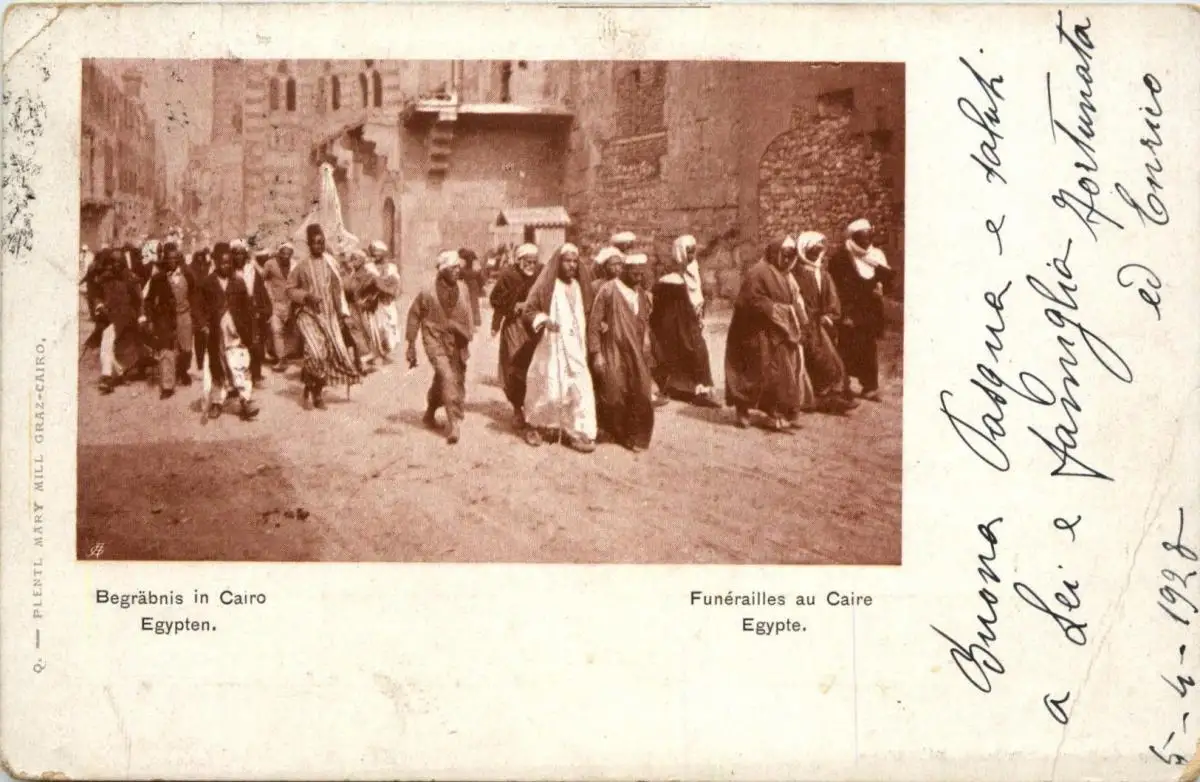 Q. — PLENTL MARY MILL GRAZ-CAIRO.
Begräbnis in Cairo
Egypten.
Funérailles au Caire
Egypte.
Buona Pasqua e saluti
a Lei e famiglia Fortunata
ed Enrico
5-4-1928